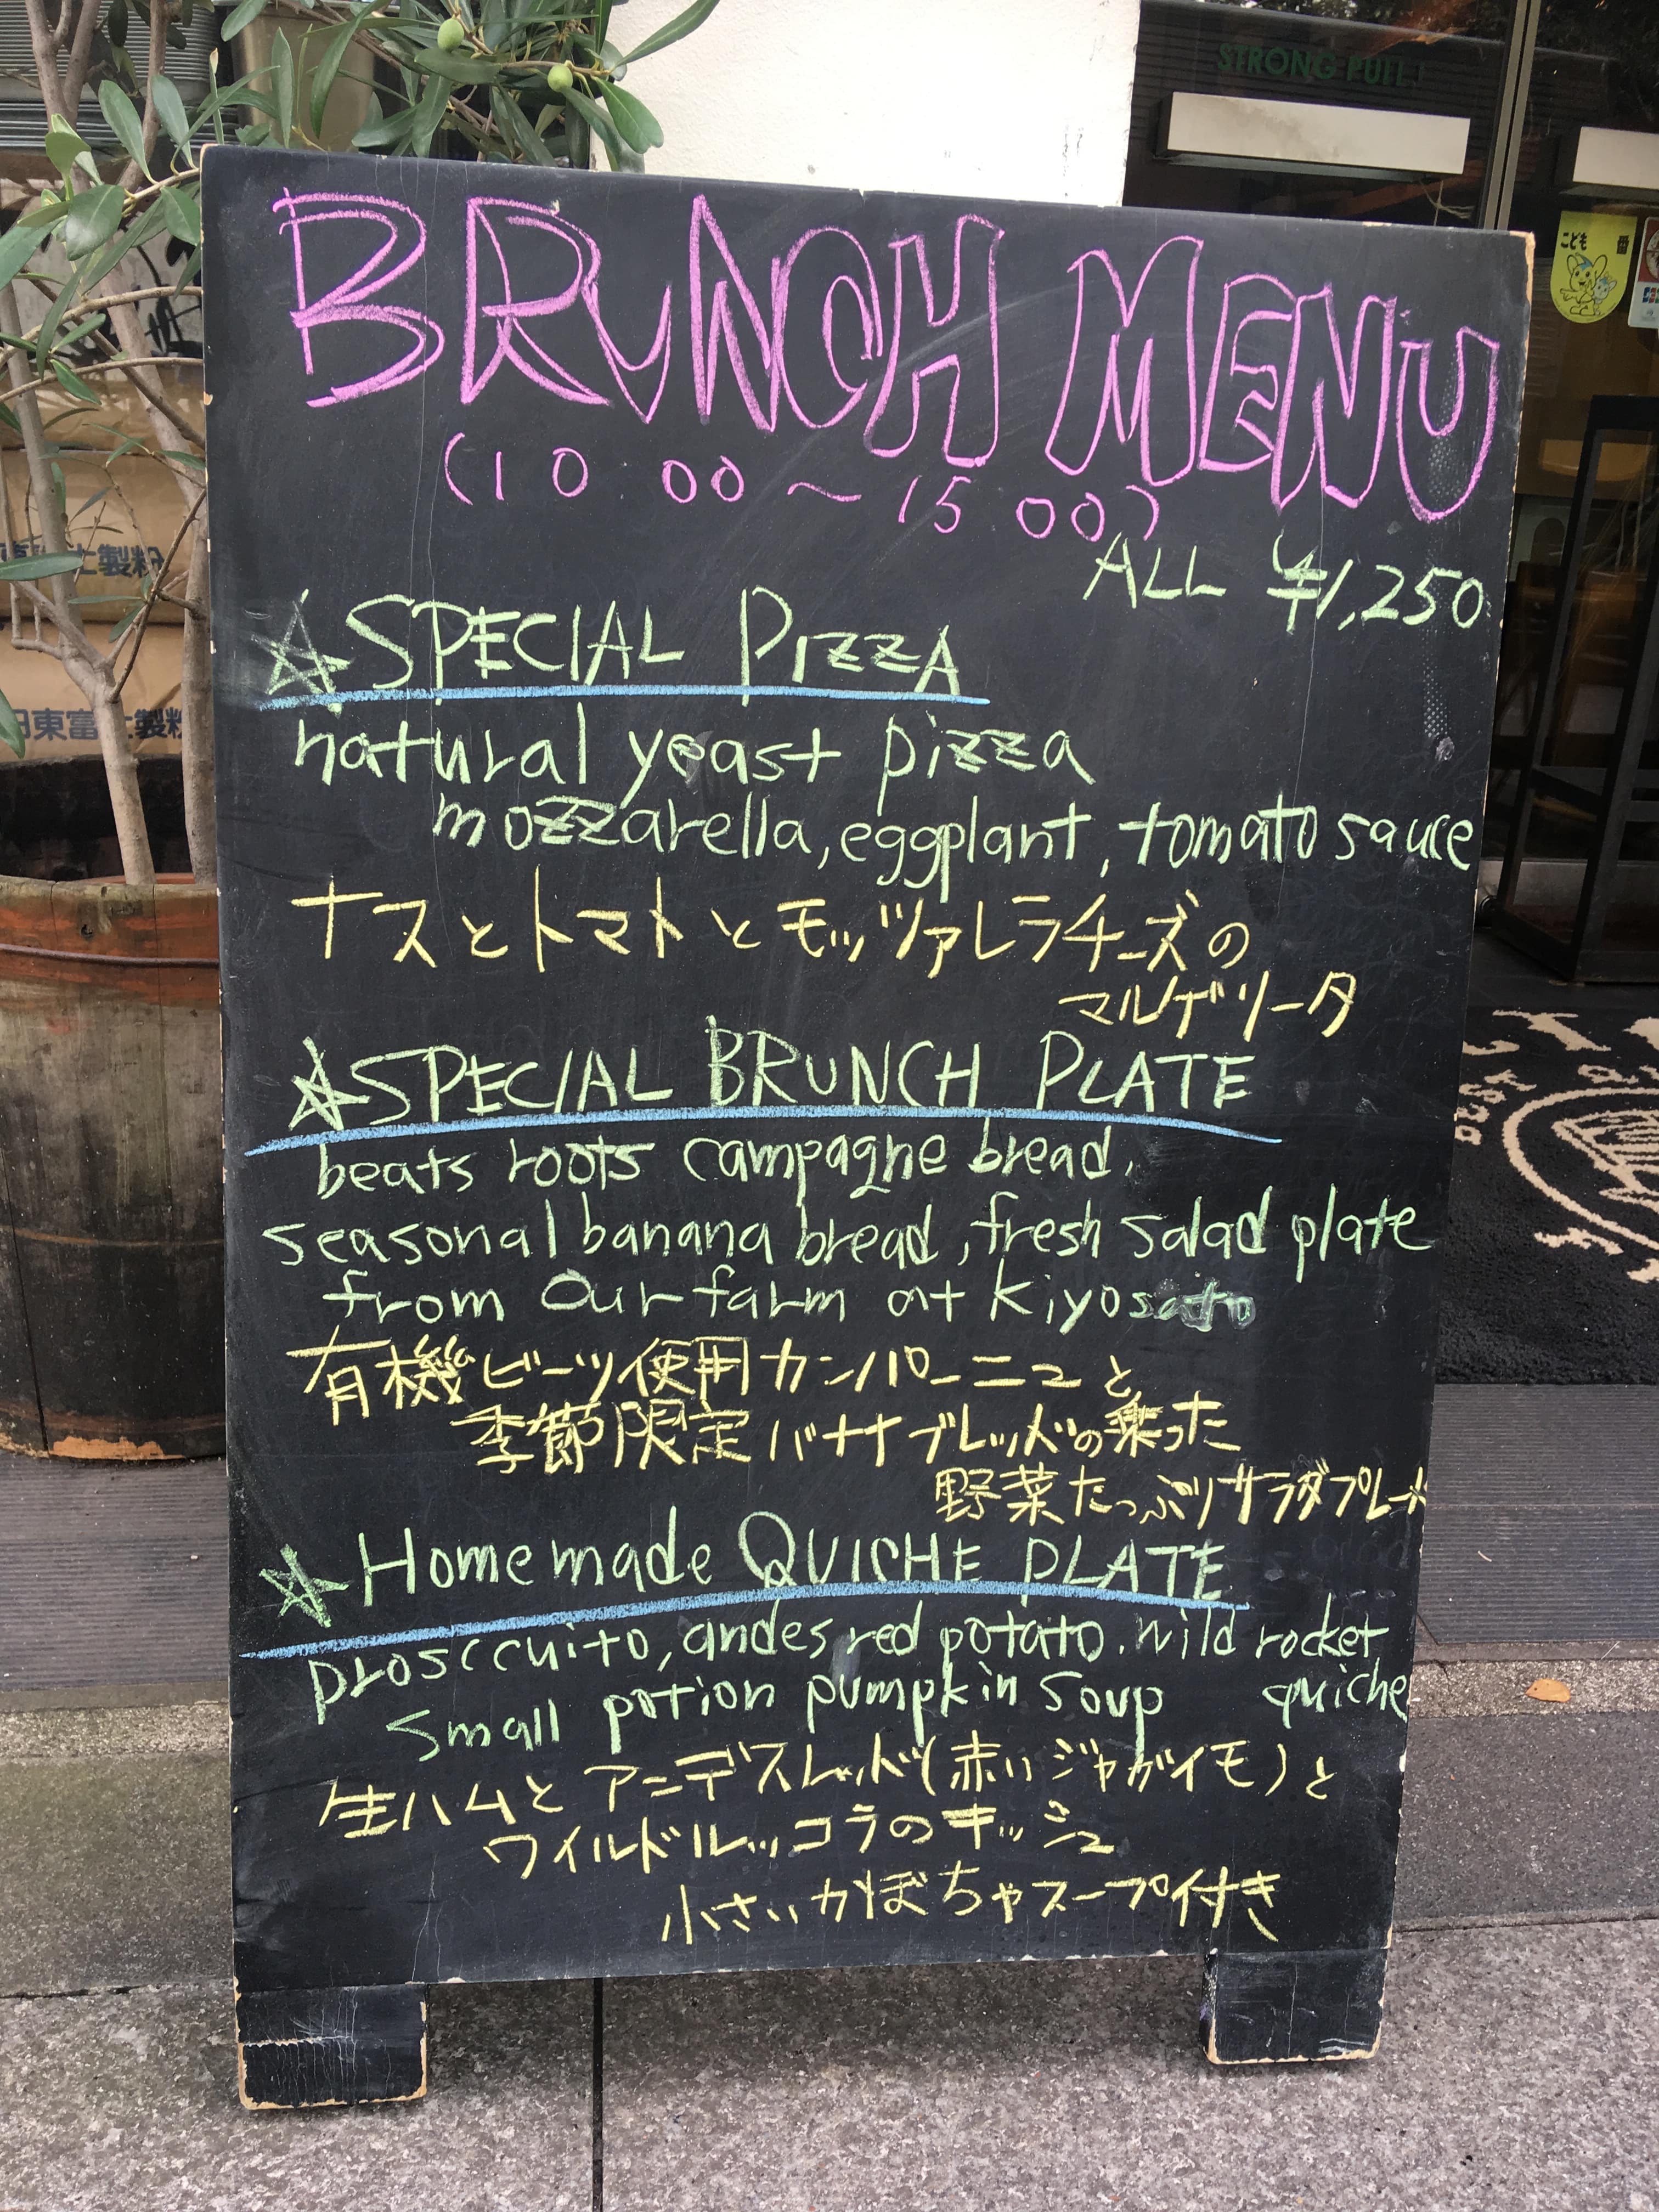 STRONG PULL!
こども
番
BRUNCH MENU
(10 00 ~ 15 00)
ALL ¥1,250
☆SPECIAL PIZZA
natural yeast pizza
mozzarella, eggplant, tomato sauce
ナスとトマトとモッツァレラチーズの
マルゲリータ
☆SPECIAL BRUNCH PLATE
beats roots campagne bread,
seasonal banana bread, fresh salad plate
from our farm at Kiyosato
有機ビーツ使用カンパーニュと
季節限定バナナブレッドの乗った
野菜たっぷりサラダプレート
☆Homemade QUICHE PLATE
prosccuito, andes red potato. wild rocket
quiche
small potion pumpkin soup
生ハムとアンデスレッド(赤いジャガイモ)と
ワイルドルッコラのキッシュ
小さいかぼちゃスープ付き
東富士製粉
東富士製粉